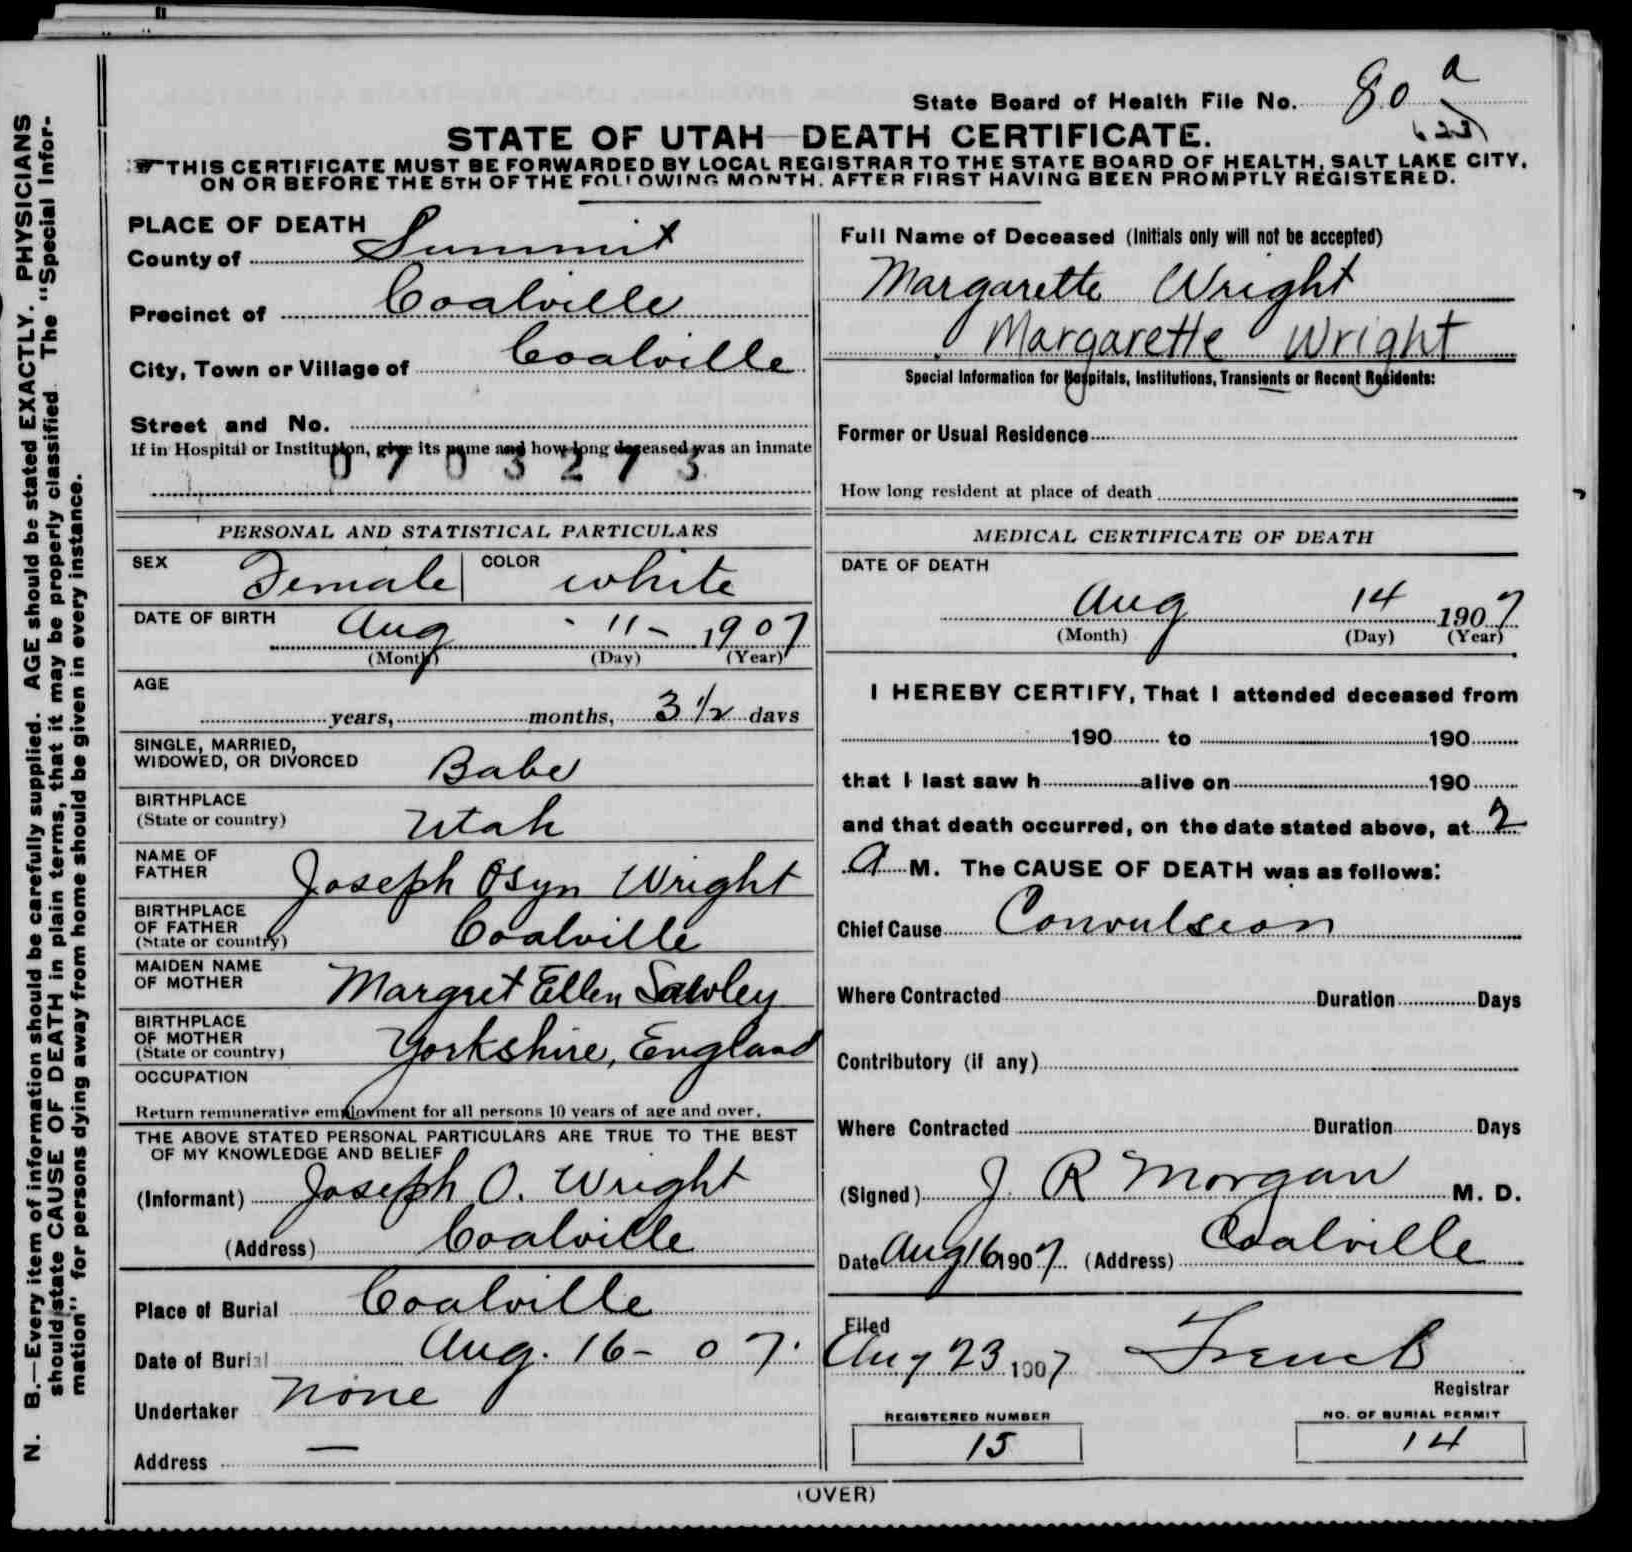 State Board of Health File No. 80 a
STATE OF UTAH—DEATH CERTIFICATE.
THIS CERTIFICATE MUST BE FORWARDED BY LOCAL REGISTRAR TO THE STATE BOARD OF HEALTH, SALT LAKE CITY,
ON OR BEFORE THE 5TH OF THE FOLLOWING MONTH, AFTER FIRST HAVING BEEN PROMPTLY REGISTERED.
N. B.—Every item of information should be carefully supplied. AGE should be stated EXACTLY. PHYSICIANS
should state CAUSE OF DEATH in plain terms, that it may be properly classified. The "Special Infor-
mation" for persons dying away from home should be given in every instance.
PLACE OF DEATH
County of Summit
Precinct of Coalville
City, Town or Village of Coalville
Street and No.
If in Hospital or Institution, give its name and how long deceased was an inmate
0703273
PERSONAL AND STATISTICAL PARTICULARS
SEX Female COLOR white
DATE OF BIRTH Aug - 11 - 1907
(Month) (Day) (Year)
AGE
years, months, 3 1/2 days
SINGLE, MARRIED,
WIDOWED, OR DIVORCED Babe
BIRTHPLACE
(State or country) Utah
NAME OF
FATHER Joseph Osyn Wright
BIRTHPLACE
OF FATHER
(State or country) Coalville
MAIDEN NAME
OF MOTHER Margret Ellen Sawley
BIRTHPLACE
OF MOTHER
(State or country) Yorkshire, England
OCCUPATION
Return remunerative employment for all persons 10 years of age and over.
THE ABOVE STATED PERSONAL PARTICULARS ARE TRUE TO THE BEST
OF MY KNOWLEDGE AND BELIEF
(Informant) Joseph O. Wright
(Address) Coalville
Place of Burial Coalville
Date of Burial Aug. 16 - 07.
Undertaker None
Address —
Full Name of Deceased (Initials only will not be accepted)
Margarette Wright
Margarette Wright
Special Information for Hospitals, Institutions, Transients or Recent Residents:
Former or Usual Residence
How long resident at place of death
MEDICAL CERTIFICATE OF DEATH
DATE OF DEATH
Aug 14 1907
(Month) (Day) (Year)
I HEREBY CERTIFY, That I attended deceased from
190 to 190
that I last saw h alive on 190
and that death occurred, on the date stated above, at 2
A M. The CAUSE OF DEATH was as follows:
Chief Cause Convulseon
Where Contracted Duration Days
Contributory (if any)
Where Contracted Duration Days
(Signed) J R Morgan M. D.
Date Aug 16 1907 (Address) Coalville
Filed
Aug 23 1907
Registrar
REGISTERED NUMBER
15
NO. OF BURIAL PERMIT
14
(OVER)